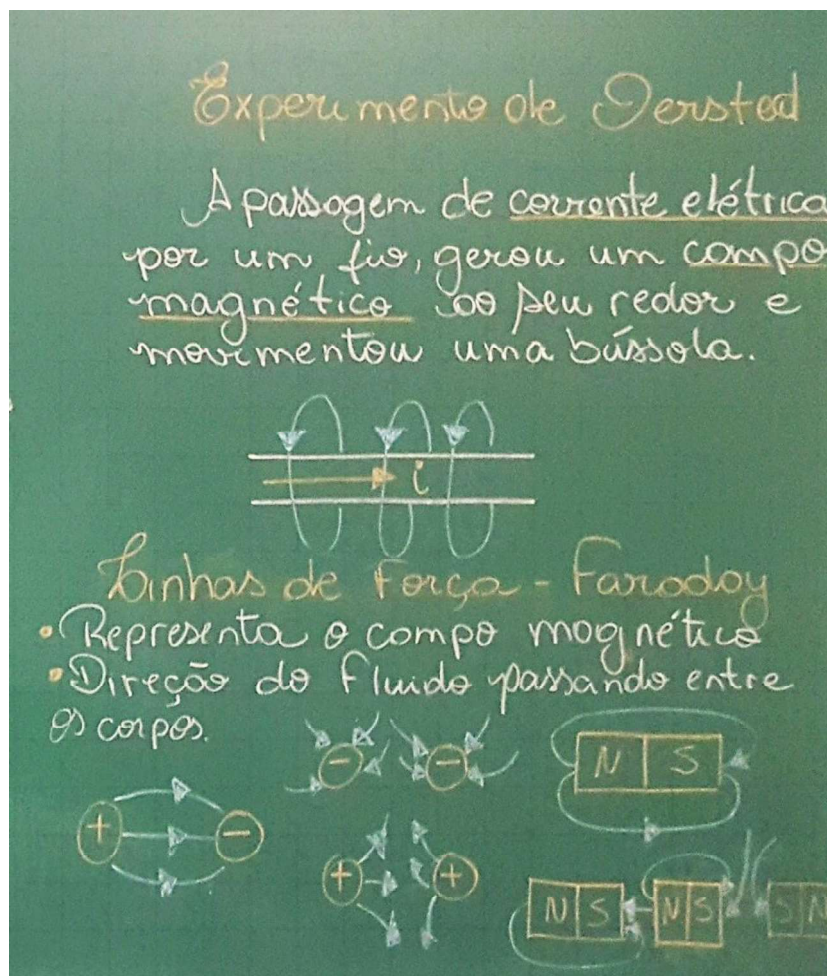 Experimento de Oersted
A passagem de corrente elétrica
por um fio, gerou um campo
magnético ao seu redor e
movimentou uma bússola.
i
Linhas de Força - Faraday
• Representa o campo magnético
• Direção do fluido passando entre
os corpos.
- -
N S
+ -
+ +
N S N S S N